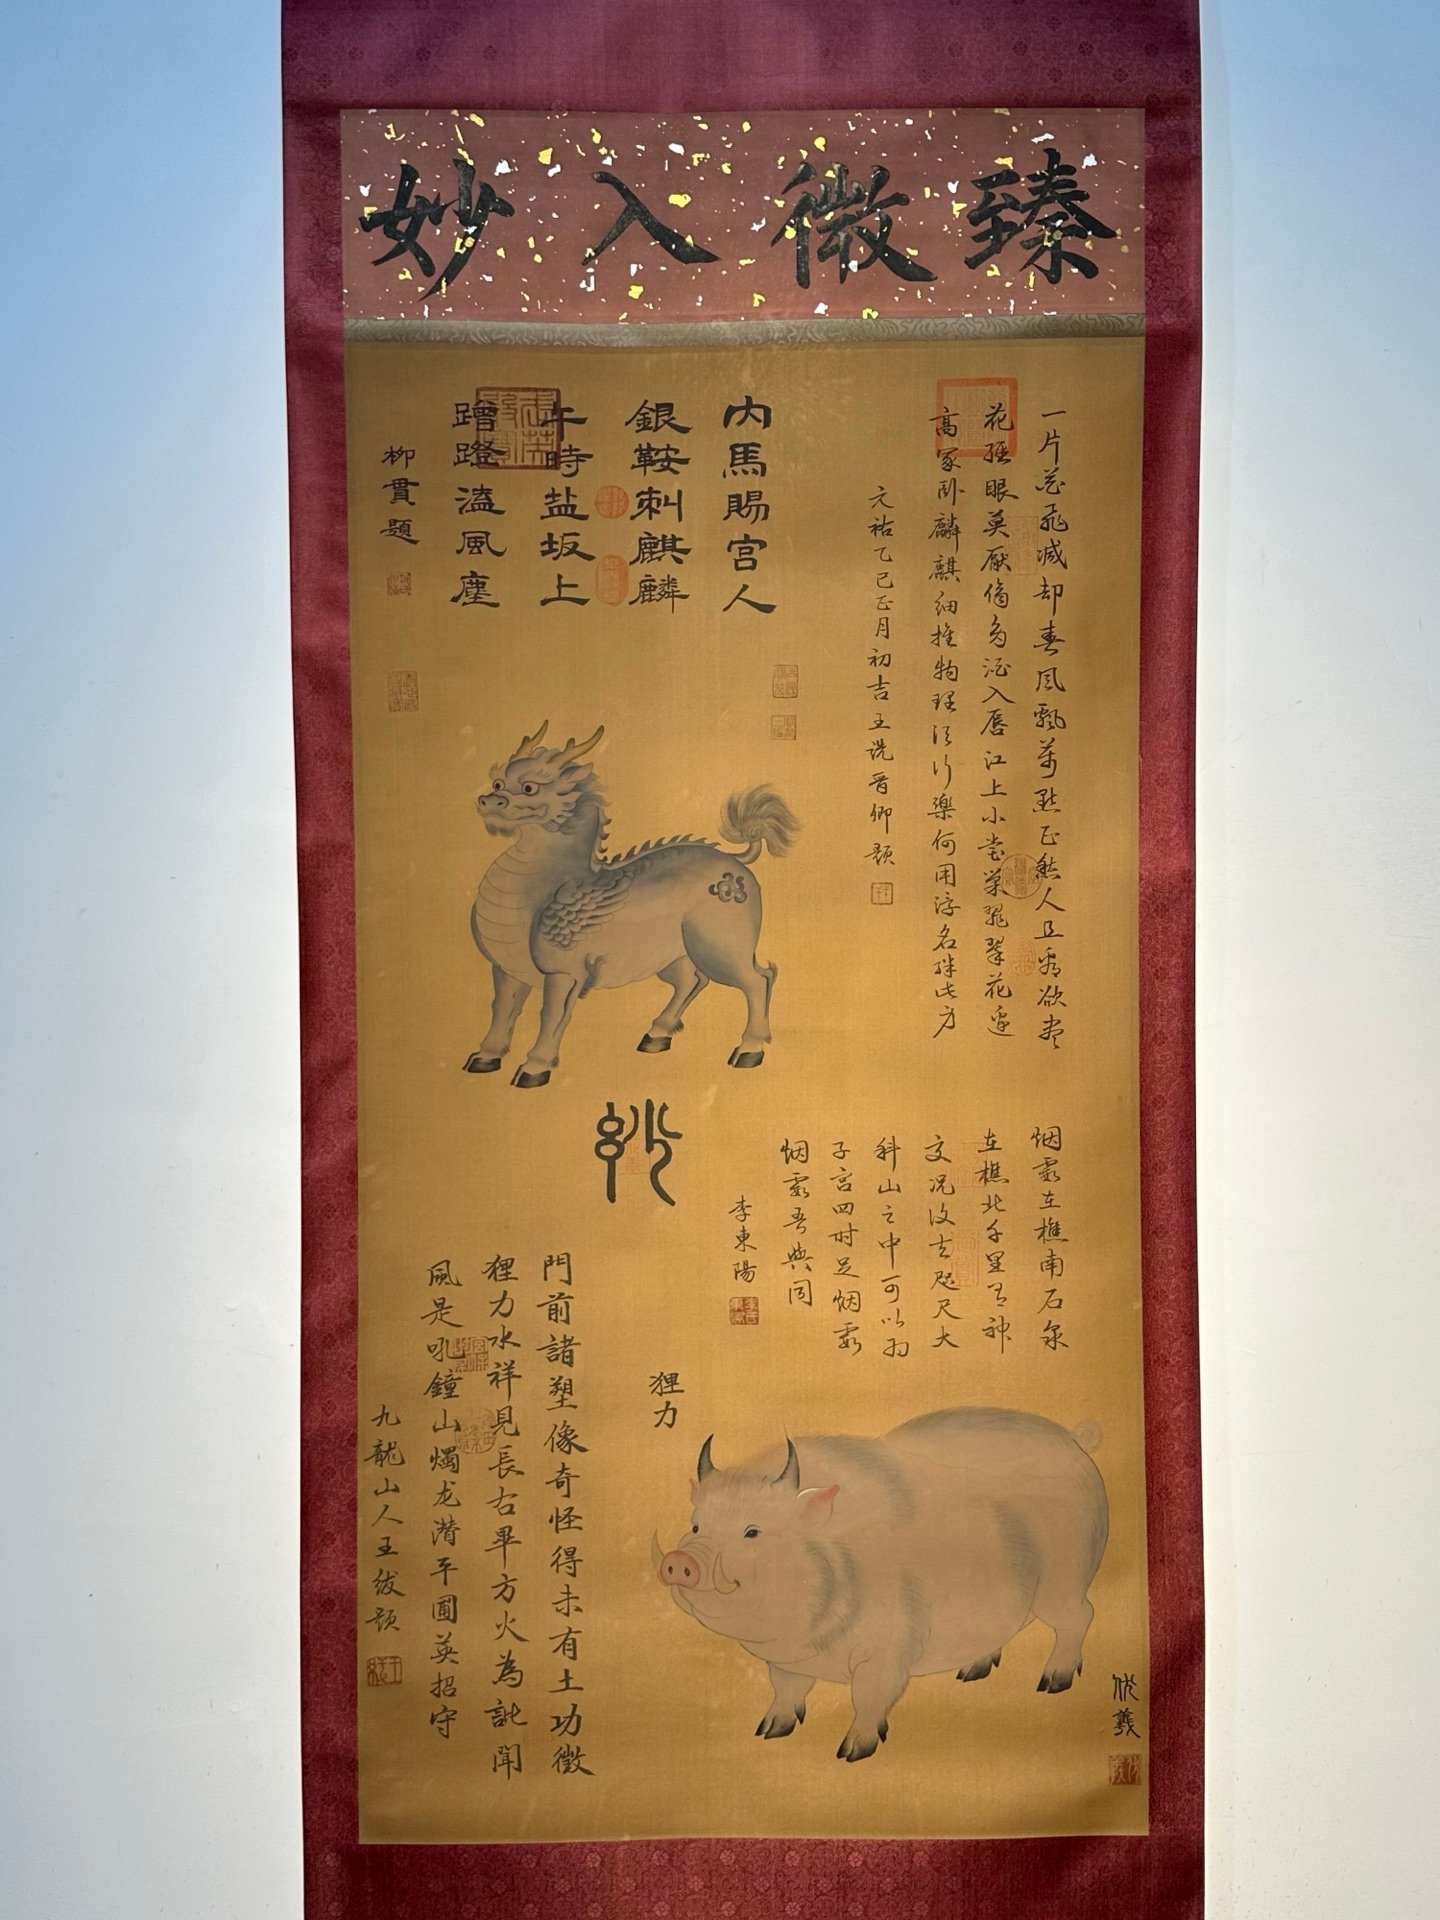 臻微入妙
一片花飛減却春風飄萬點正愁人且看欲盡
花經眼莫厭傷多酒入唇江上小堂巢翡翠花邊
高冢卧麟麒細推物理須行樂何用浮名絆此身
元祐乙巳正月初吉王詵晋卿題
内馬賜宫人
銀鞍刺麒麟
午時盐坂上
蹭蹬溘風塵
柳貫題
妙
烟霞在樵南石泉
在樵北千里有神
交况復去咫尺大
科山之中可以為
子宫四時足烟霞
烟霞吾與同
李東陽
狸力
門前諸塑像奇怪得未有土功徵
狸力水祥見長右畢方火為訛聞
風是吼鐘山燭龙潜平圃英招守
九龍山人王紱題